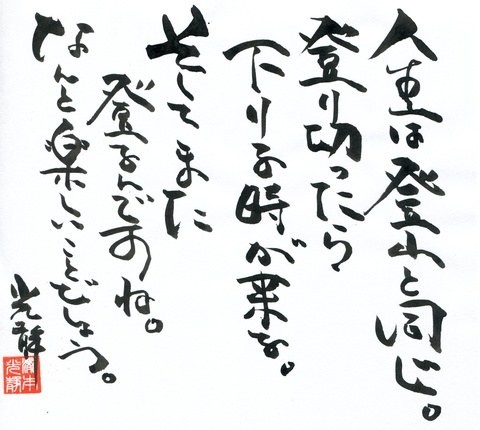 人生は登山と同じ。
登り切ったら
下りる時が来る。
そしてまた
登るんですね。
なんと楽しいことでしょう。